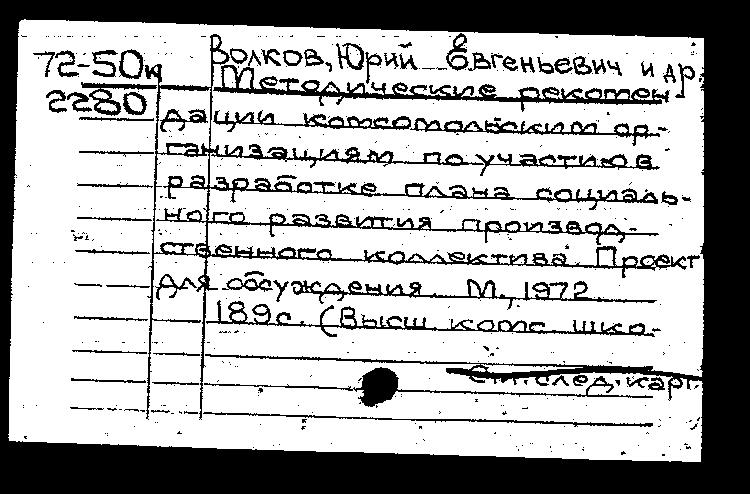 72-50к Волков, Юрий Евгеньевич и др.
2280 Методические рекомен-
дации комсомольским ор-
ганизациям по участию в
разработке плана социаль-
ного развития производ-
ственного коллектива. Проект
для обсуждения. М., 1972.
189 с. (Высш. комс. шко-
См. след. карт.